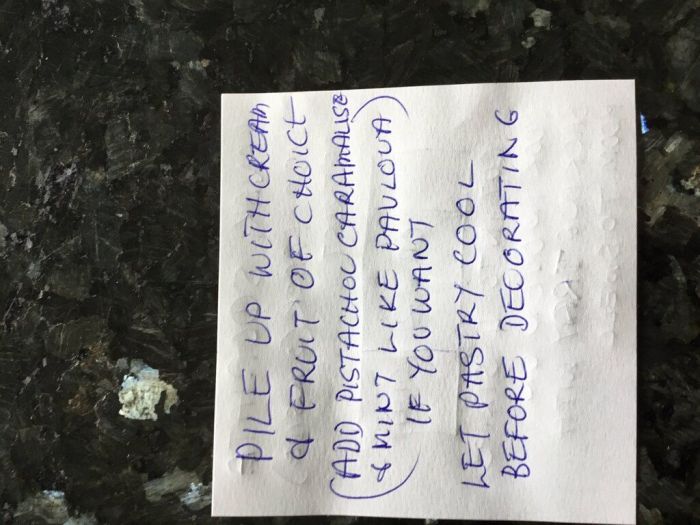 PILE UP WITH CREAM
& FRUIT OF CHOICE
(ADD PISTACHOU CARAMALISE
& MINT LIKE PAVLOVA)
IF YOU WANT
LET PASTRY COOL
BEFORE DECORATING